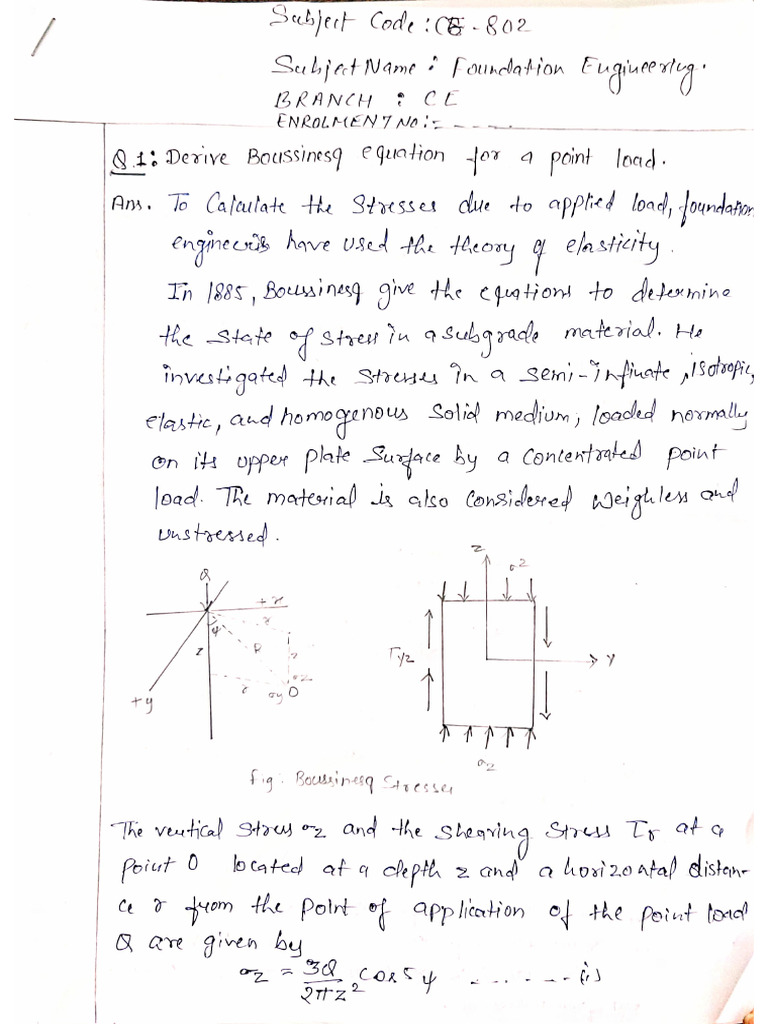 Subject Code : CE-802
Subject Name : Foundation Engineering.
BRANCH : CE
ENROLMENT NO :- - - - - .
Q.1: Derive Boussinesq equation for a point load.
Ans. To Calculate the Stresses due to applied load, foundation
engineers have used the theory of elasticity.
In 1885, Boussinesq give the equations to determine
the State of stress in a subgrade material. He
investigated the stresses in a semi-infinate, isotropic,
elastic, and homogenous Solid medium, loaded normally
on its upper plate Surface by a concentrated point
load. The material is also considered weighless and
unstressed.
Q
+x
r
ψ
R
z
z
r
σy
O
σz
+y
z
σz
τyz
y
σz
Fig: Boussinesq Stresses
The vertical stress σz and the shearing stress τr at a
point O located at a depth z and a horizontal distan-
ce r from the point of application of the point load
Q are given by
σz = 3Q/2πz² cos5 ψ - - - - - - - (i)